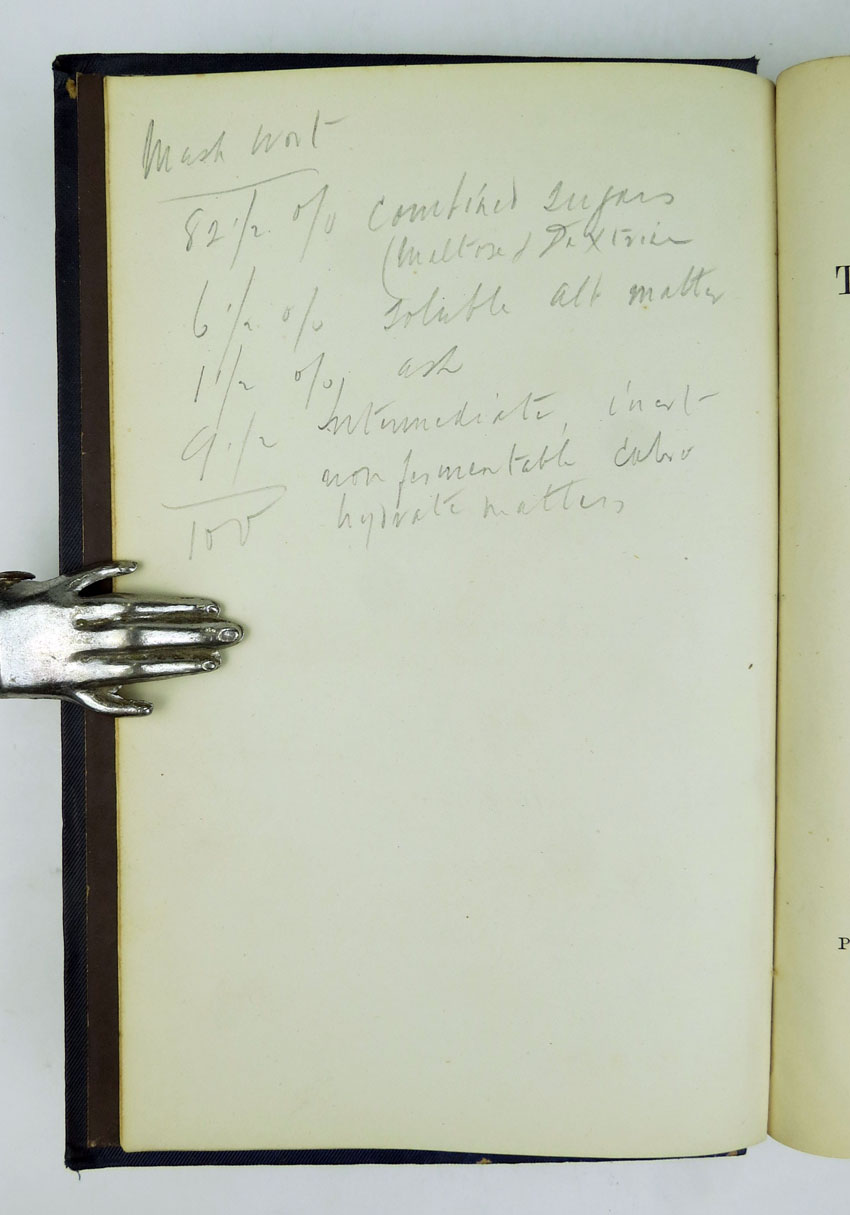 Mash Wort
82 1/2 % Combined Sugars
(Maltose & Dextrin
6 1/2 % Soluble alb matter
1 1/2 % ash
9 1/2 Intermediate, inert
non fermentable carbo
100 hydrate matters
T
P